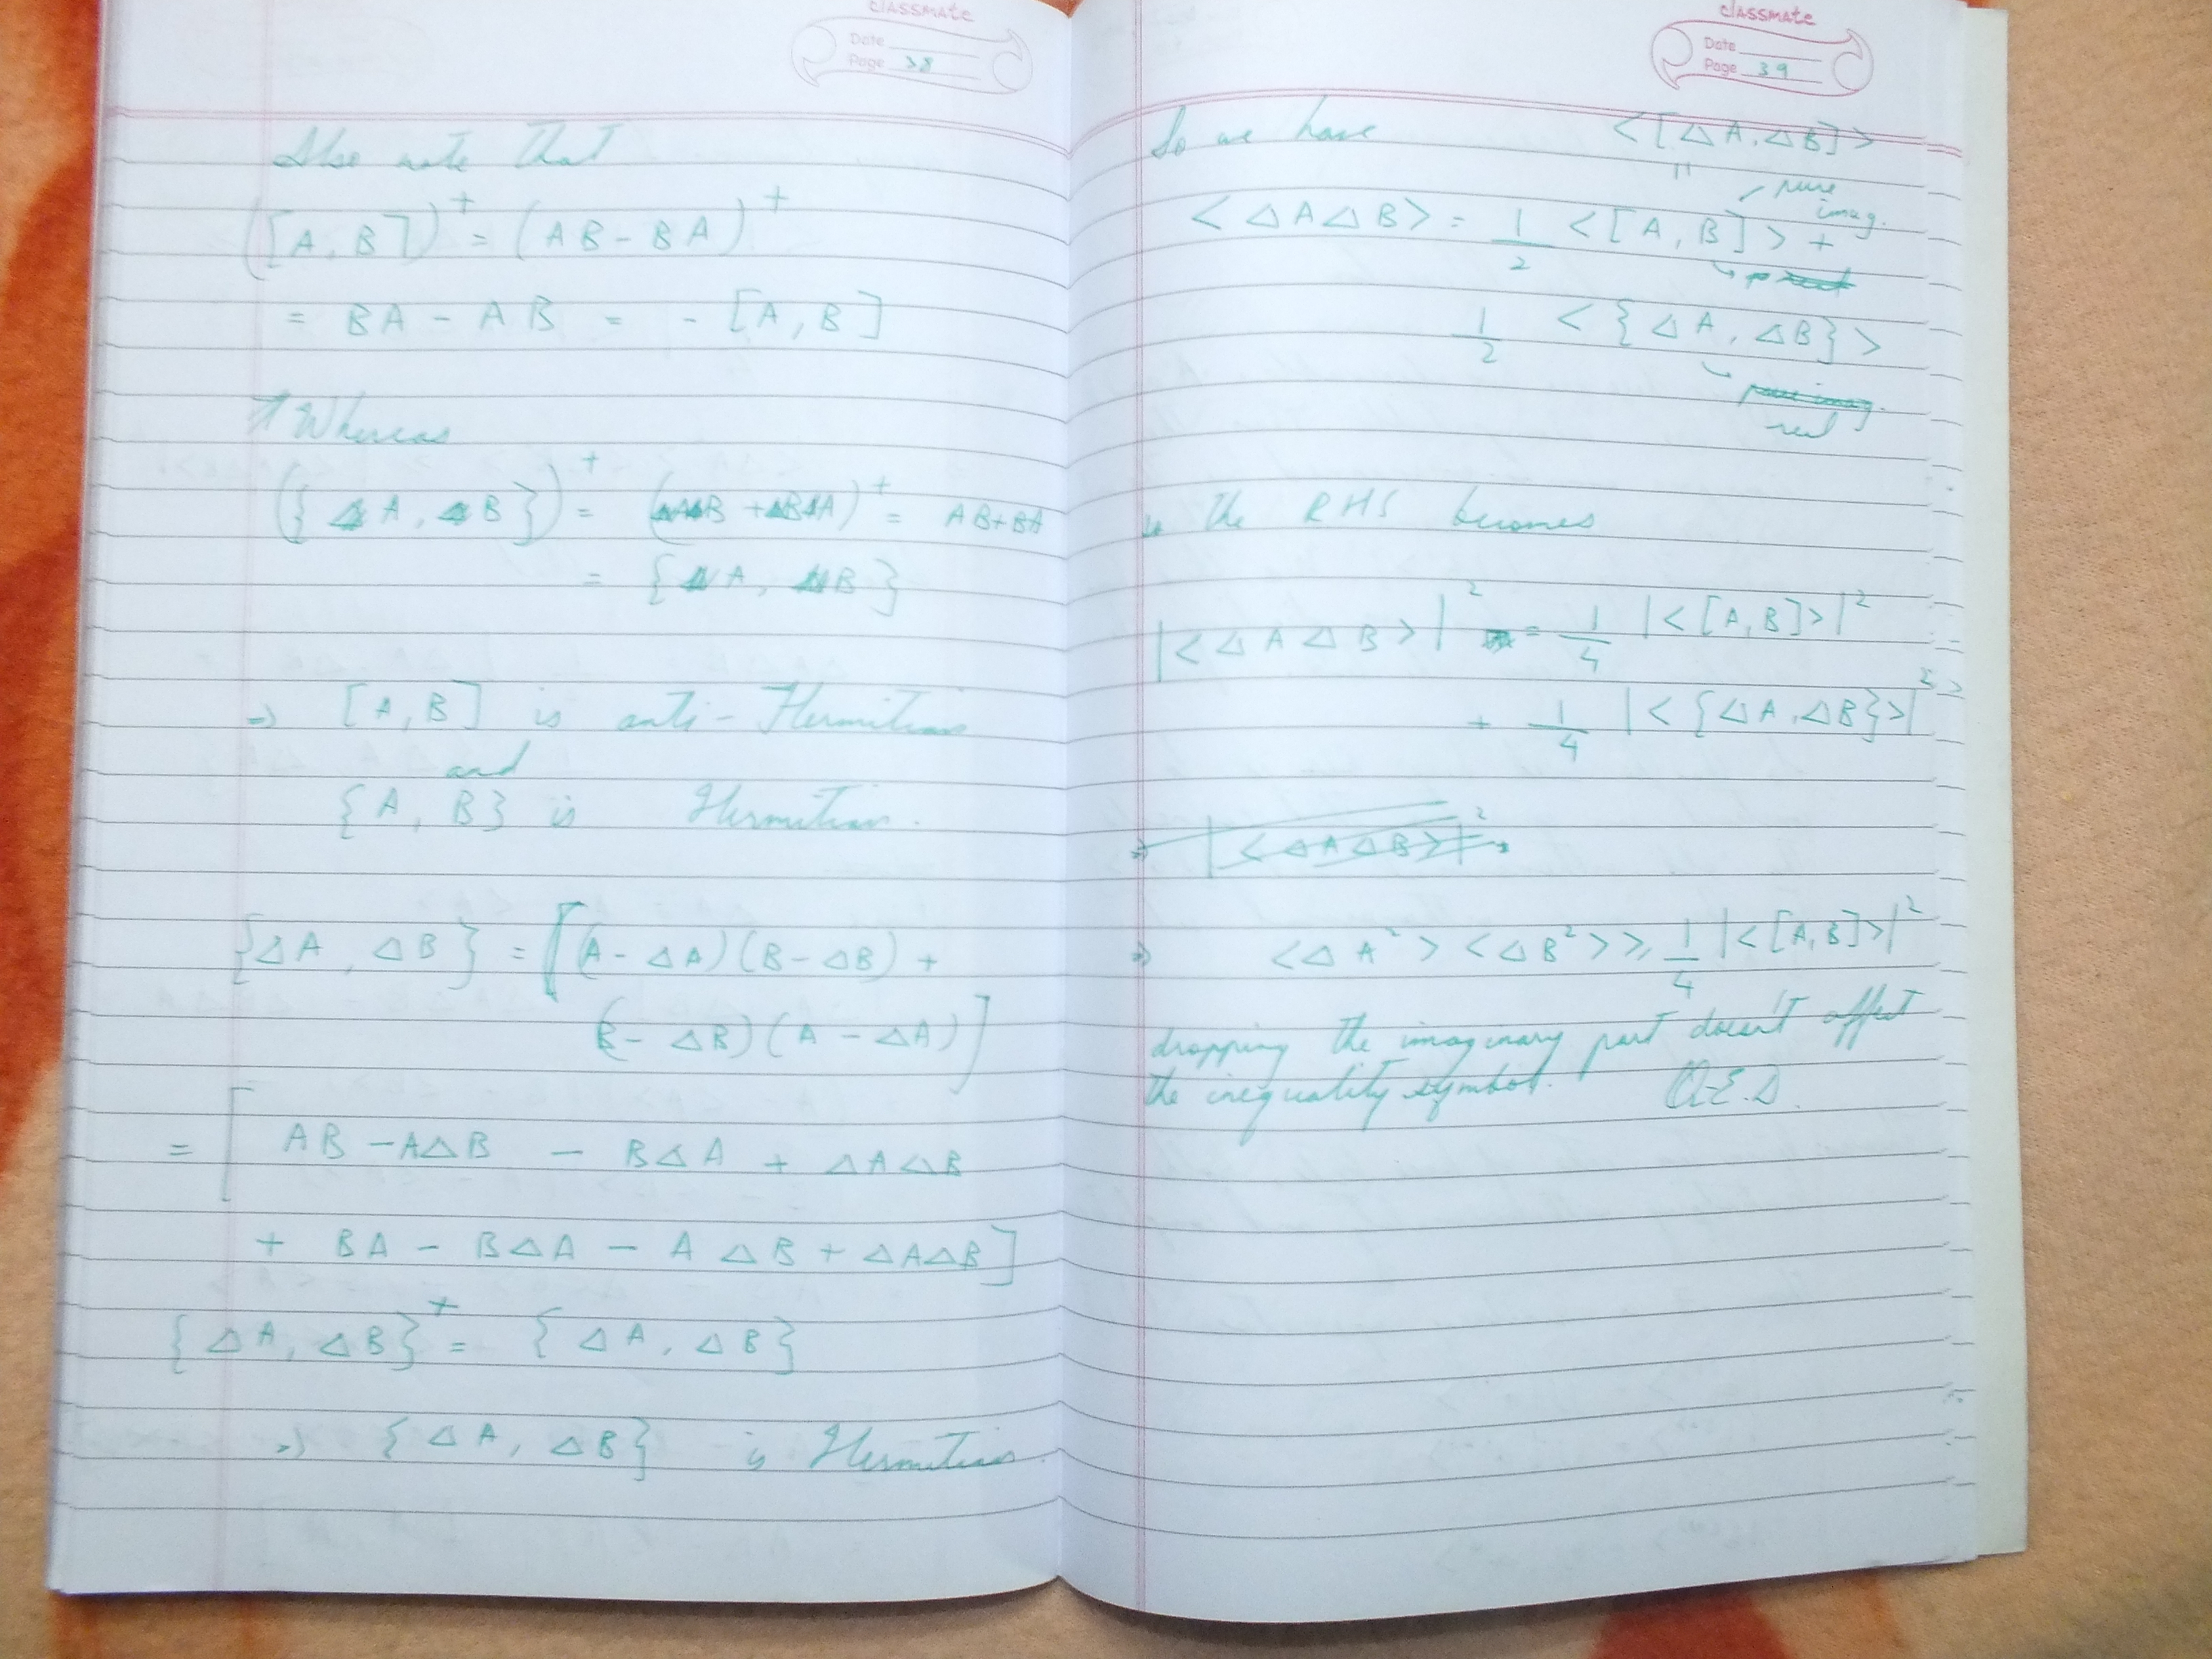 classmate
Date
Page 38
Also note that
([A, B])⁺ = (AB - BA)⁺
= BA - AB = - [A, B]
Whereas
({A, B})⁺ = (AB + BA)⁺ = AB+BA
= {A, B}
⇒ [A, B] is anti-Hermitian
and
{A, B} is Hermitian.
{ΔA, ΔB} = [(A - ΔA)(B - ΔB) +
(B - ΔB)(A - ΔA)]
= [AB - AΔB - BΔA + ΔAΔB
+ BA - BΔA - AΔB + ΔAΔB]
{ΔA, ΔB}⁺ = {ΔA, ΔB}
⇒ {ΔA, ΔB} is Hermitian.
classmate
Date
Page 39
So we have <[ΔA, ΔB]>
=
pure
imag.
<ΔAΔB> = 1/2 <[A, B]> +
1/2 <{ΔA, ΔB}>
pure imag.
real
the RHS becomes
|<ΔAΔB>|² = 1/4 |<[A, B]>|²
+ 1/4 |<{ΔA, ΔB}>|²
⇒ |<ΔAΔB>|²
⇒ <ΔA²><ΔB²> ≥ 1/4 |<[A, B]>|²
dropping the imaginary part doesn't affect
the inequality symbol. Q.E.D.